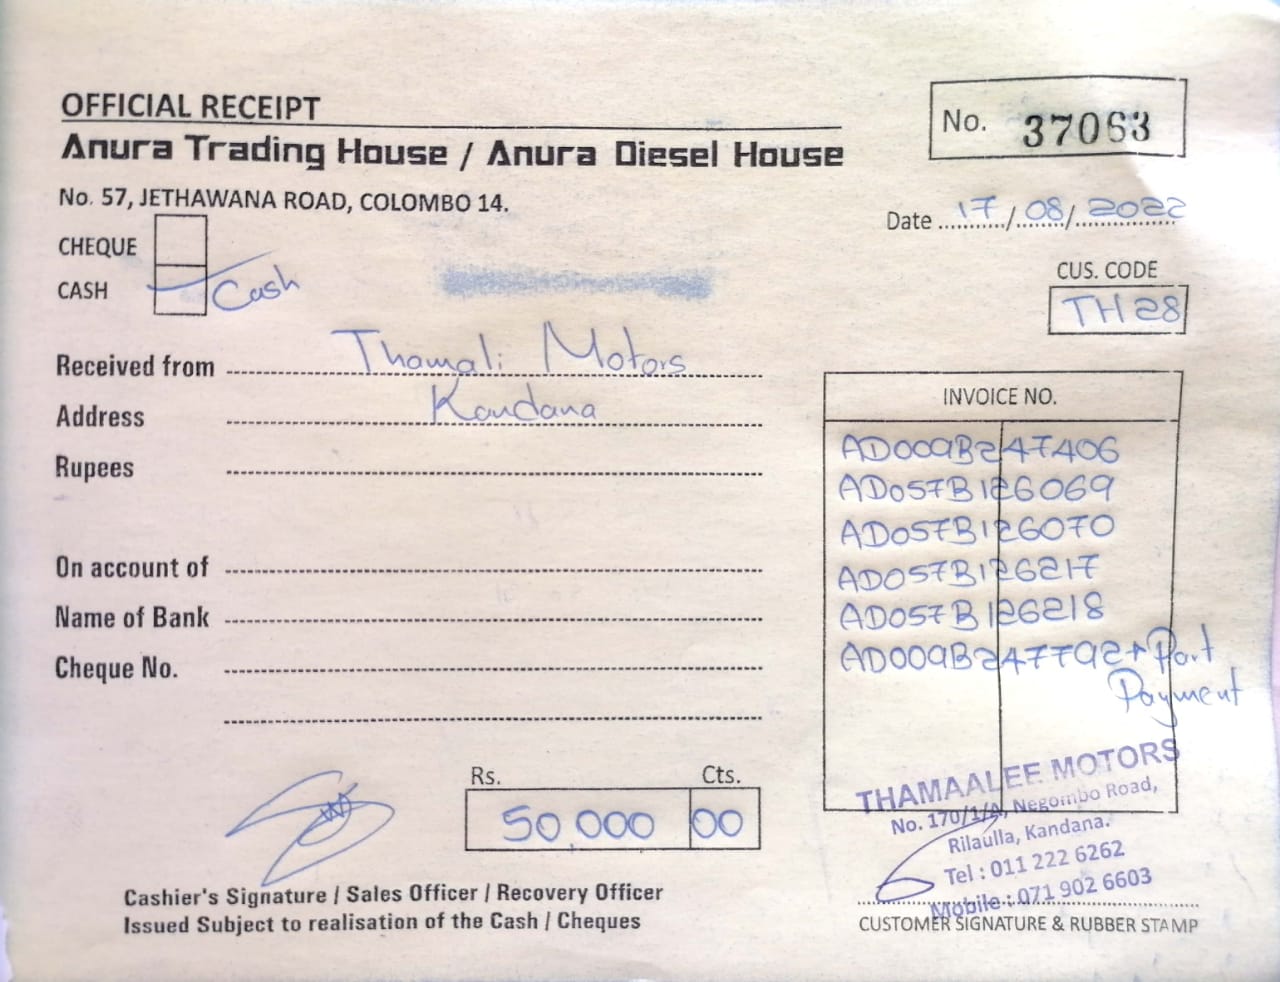 OFFICIAL RECEIPT
Anura Trading House / Anura Diesel House
No. 57, JETHAWANA ROAD, COLOMBO 14.
No. 37063
Date 17/08/2022
CHEQUE
CASH Cash
CUS. CODE
TH28
Received from Thamali Motors
Address Kandana
Rupees
On account of
Name of Bank
Cheque No.
INVOICE NO.
AD009B247406
AD057B126069
AD057B126070
AD057B126217
AD057B126218
AD009B247792 → Part
Payment
Rs. Cts.
50,000 00
Cashier's Signature / Sales Officer / Recovery Officer
Issued Subject to realisation of the Cash / Cheques
THAMAALEE MOTORS
No. 170/1/A, Negombo Road,
Rilaulla, Kandana.
Tel : 011 222 6262
Mobile : 071 902 6603
CUSTOMER SIGNATURE & RUBBER STAMP